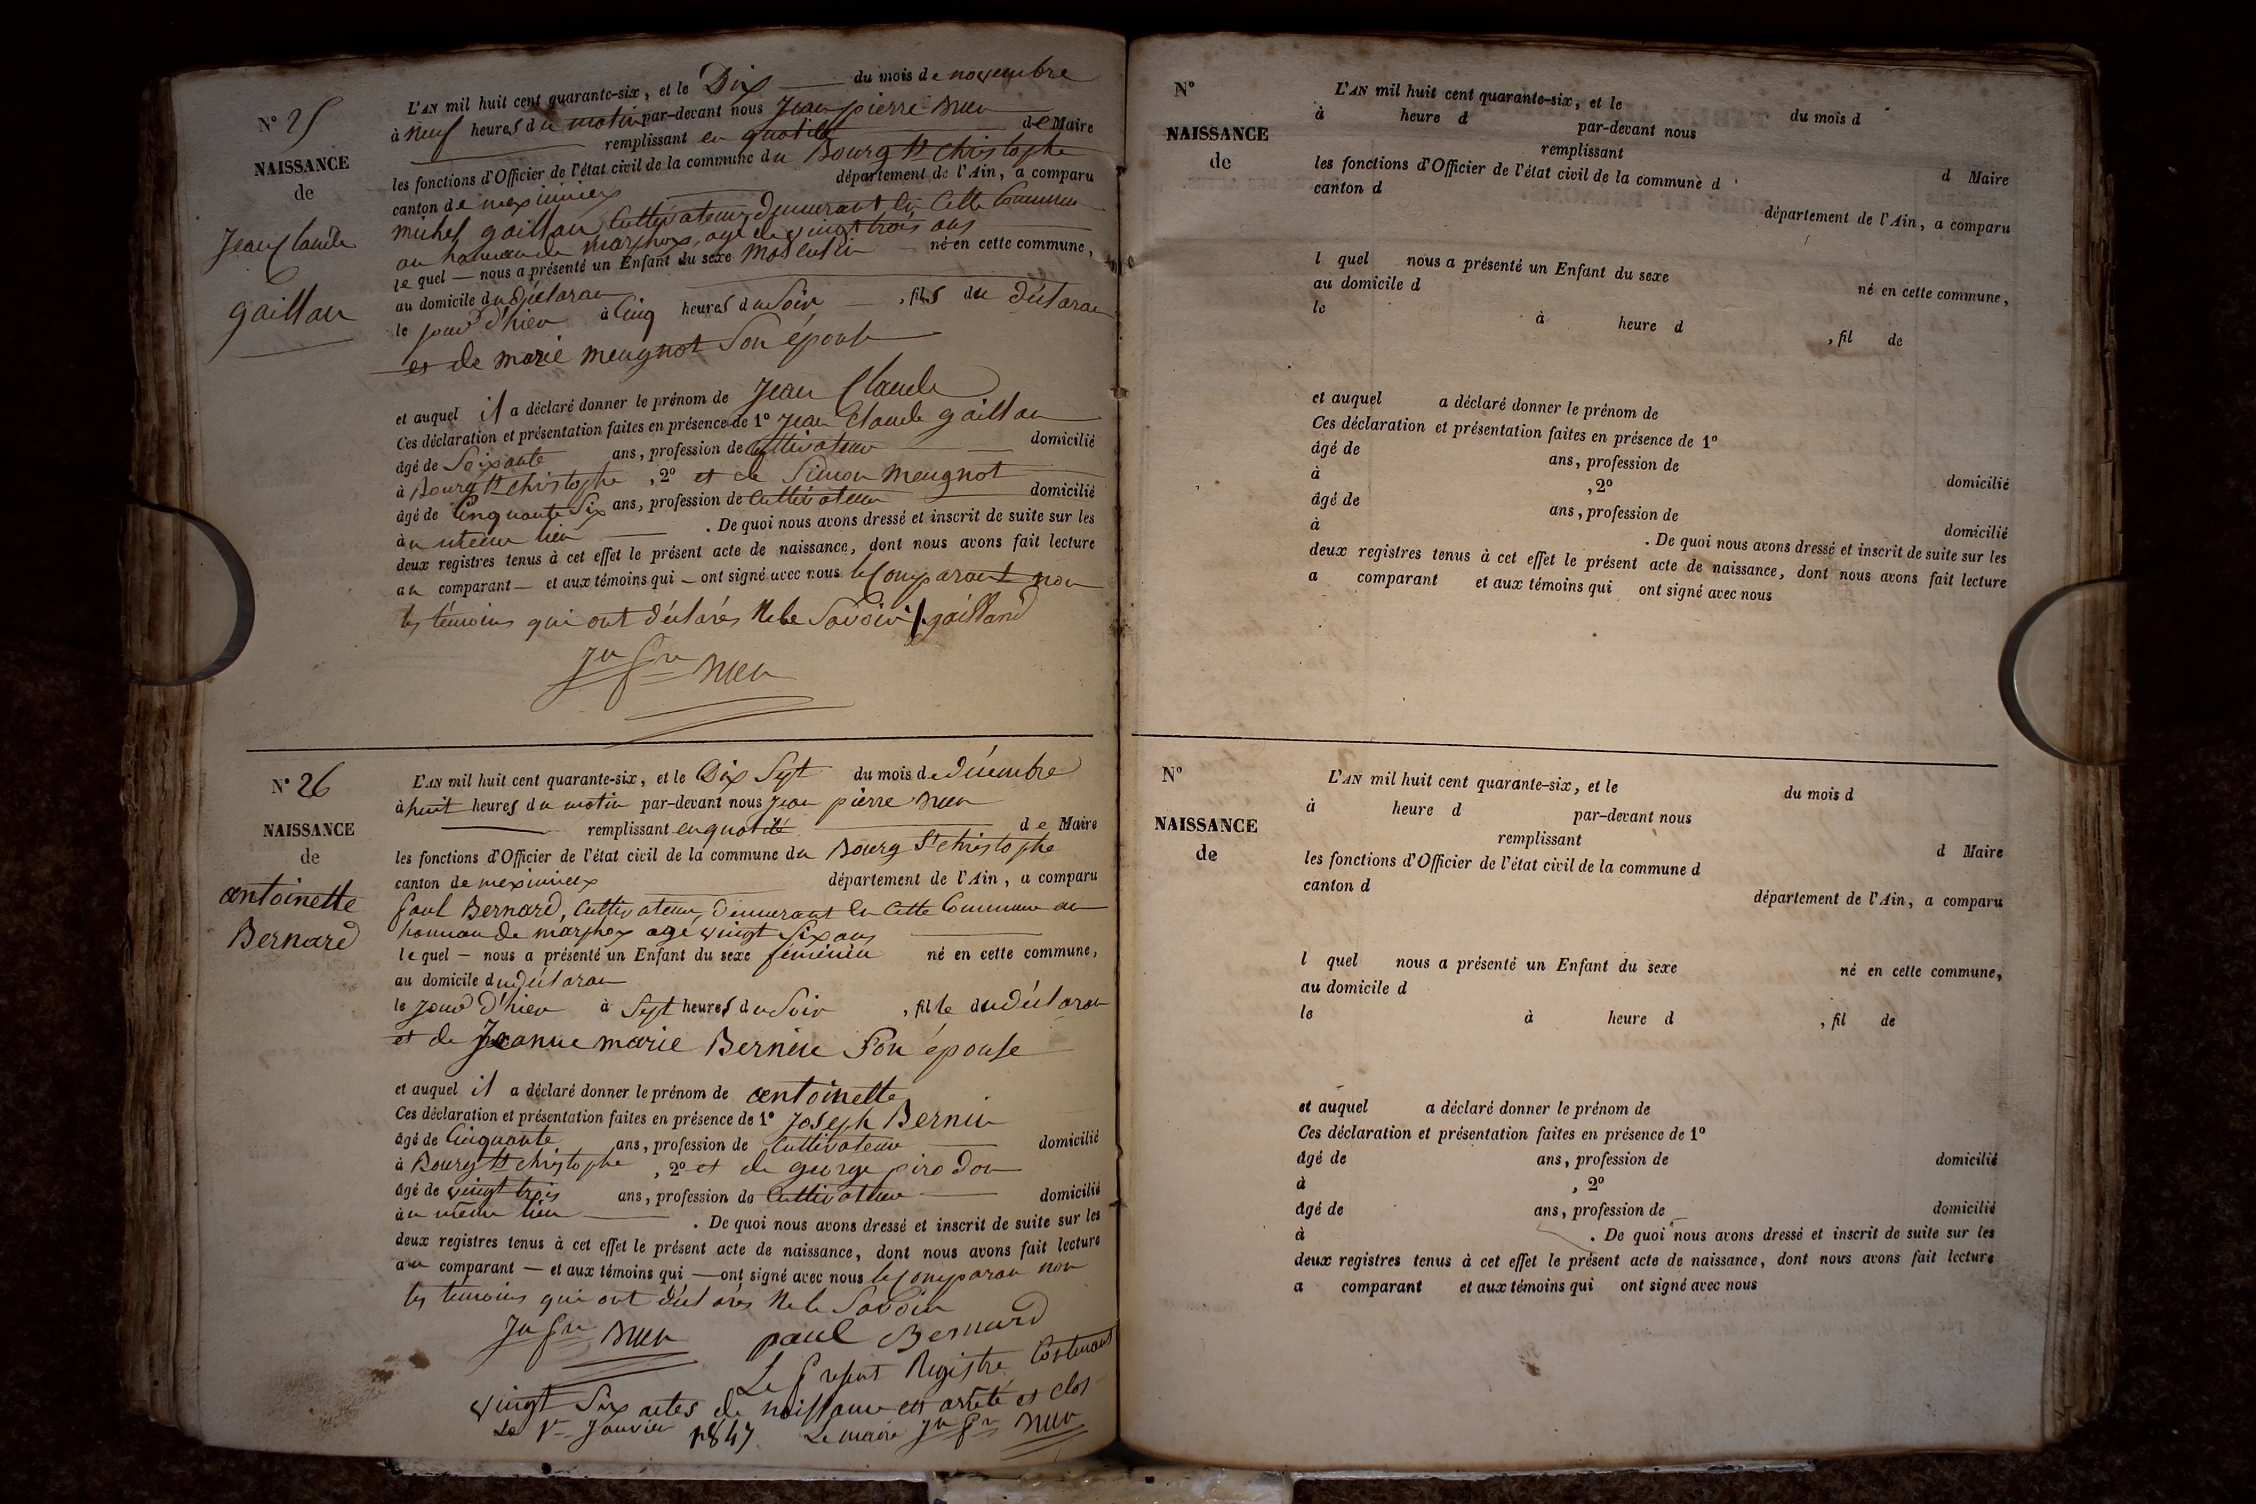 N° 25
NAISSANCE
de
Jean Claude
gaillan
L'AN mil huit cent quarante-six, et le Dix du mois de novembre
à neuf heures du matin par-devant nous Jean pierre
remplissant en qualité de Maire
les fonctions d'Officier de l'état civil de la commune du Bourg St christophe
canton de meximieux département de l'Ain, a comparu
michel gaillan, Cultivateur, Demeurant En Cette Commune
au hameau de marfhos, age de vingt trois ans
lequel — nous a présenté un Enfant du sexe masculin né en cette commune,
au domicile du déclaran
le jour d'hier à Cinq heures du Soir, fils du déclaran
et de marie meugnot Son épouse
et auquel il a déclaré donner le prénom de Jean Claude
Ces déclaration et présentation faites en présence de 1° Jean Claude gaillan
âgé de Soixante ans, profession de Cultivateur domicilié
à Bourg St christophe, 2° et de Simon meugnot
âgé de Cinquante Six ans, profession de Cultivateur domicilié
au meme lieu. De quoi nous avons dressé et inscrit de suite sur les
deux registres tenus à cet effet le présent acte de naissance, dont nous avons fait lecture
au comparant — et aux témoins qui — ont signé avec nous le Comparant non
les témoins qui ont déclarés Ne le Savoir /. gailland
Jn pre
N° 26
NAISSANCE
de
antoinette
Bernard
L'AN mil huit cent quarante-six, et le Dix Sept du mois de décembre
à huit heures du matin par-devant nous Jean pierre
remplissant en qualité de Maire
les fonctions d'Officier de l'état civil de la commune du Bourg St christophe
canton de meximieux département de l'Ain, a comparu
paul Bernard, Cultivateur, Demeurant En Cette Commune au
hameau de marfhos age vingt Six ans
lequel — nous a présenté un Enfant du sexe féminin né en cette commune,
au domicile du déclaran
le jour d'hier à Sept heures du Soir, fille du déclaran
et de Jeanne marie Bernin Son épouse
et auquel il a déclaré donner le prénom de antoinette
Ces déclaration et présentation faites en présence de 1° Joseph Bernin
âgé de Cinquante ans, profession de Cultivateur domicilié
à Bourg St christophe, 2° et de george pirodon
âgé de vingt trois ans, profession de Cultivateur domicilié
au meme lieu. De quoi nous avons dressé et inscrit de suite sur les
deux registres tenus à cet effet le présent acte de naissance, dont nous avons fait lecture
au comparant — et aux témoins qui — ont signé avec nous le Comparan non
les témoins qui ont déclarés Ne le Savoir
Jn pre paul Bernard
Le présent Registre Contenant
vingt Six actes de naissance est arrété et clos
Le 1er Janvier 1847 Le maire Jn pre
N°
NAISSANCE
de
L'AN mil huit cent quarante-six, et le du mois d
à heure d par-devant nous
remplissant d Maire
les fonctions d'Officier de l'état civil de la commune d
canton d département de l'Ain, a comparu
l quel nous a présenté un Enfant du sexe né en cette commune,
au domicile d
le à heure d , fil de
et auquel a déclaré donner le prénom de
Ces déclaration et présentation faites en présence de 1°
âgé de ans, profession de domicilié
à , 2°
âgé de ans, profession de domicilié
à . De quoi nous avons dressé et inscrit de suite sur les
deux registres tenus à cet effet le présent acte de naissance, dont nous avons fait lecture
a comparant et aux témoins qui ont signé avec nous
N°
NAISSANCE
de
L'AN mil huit cent quarante-six, et le du mois d
à heure d par-devant nous
remplissant d Maire
les fonctions d'Officier de l'état civil de la commune d
canton d département de l'Ain, a comparu
l quel nous a présenté un Enfant du sexe né en cette commune,
au domicile d
le à heure d , fil de
et auquel a déclaré donner le prénom de
Ces déclaration et présentation faites en présence de 1°
âgé de ans, profession de domicilié
à , 2°
âgé de ans, profession de domicilié
à . De quoi nous avons dressé et inscrit de suite sur les
deux registres tenus à cet effet le présent acte de naissance, dont nous avons fait lecture
a comparant et aux témoins qui ont signé avec nous